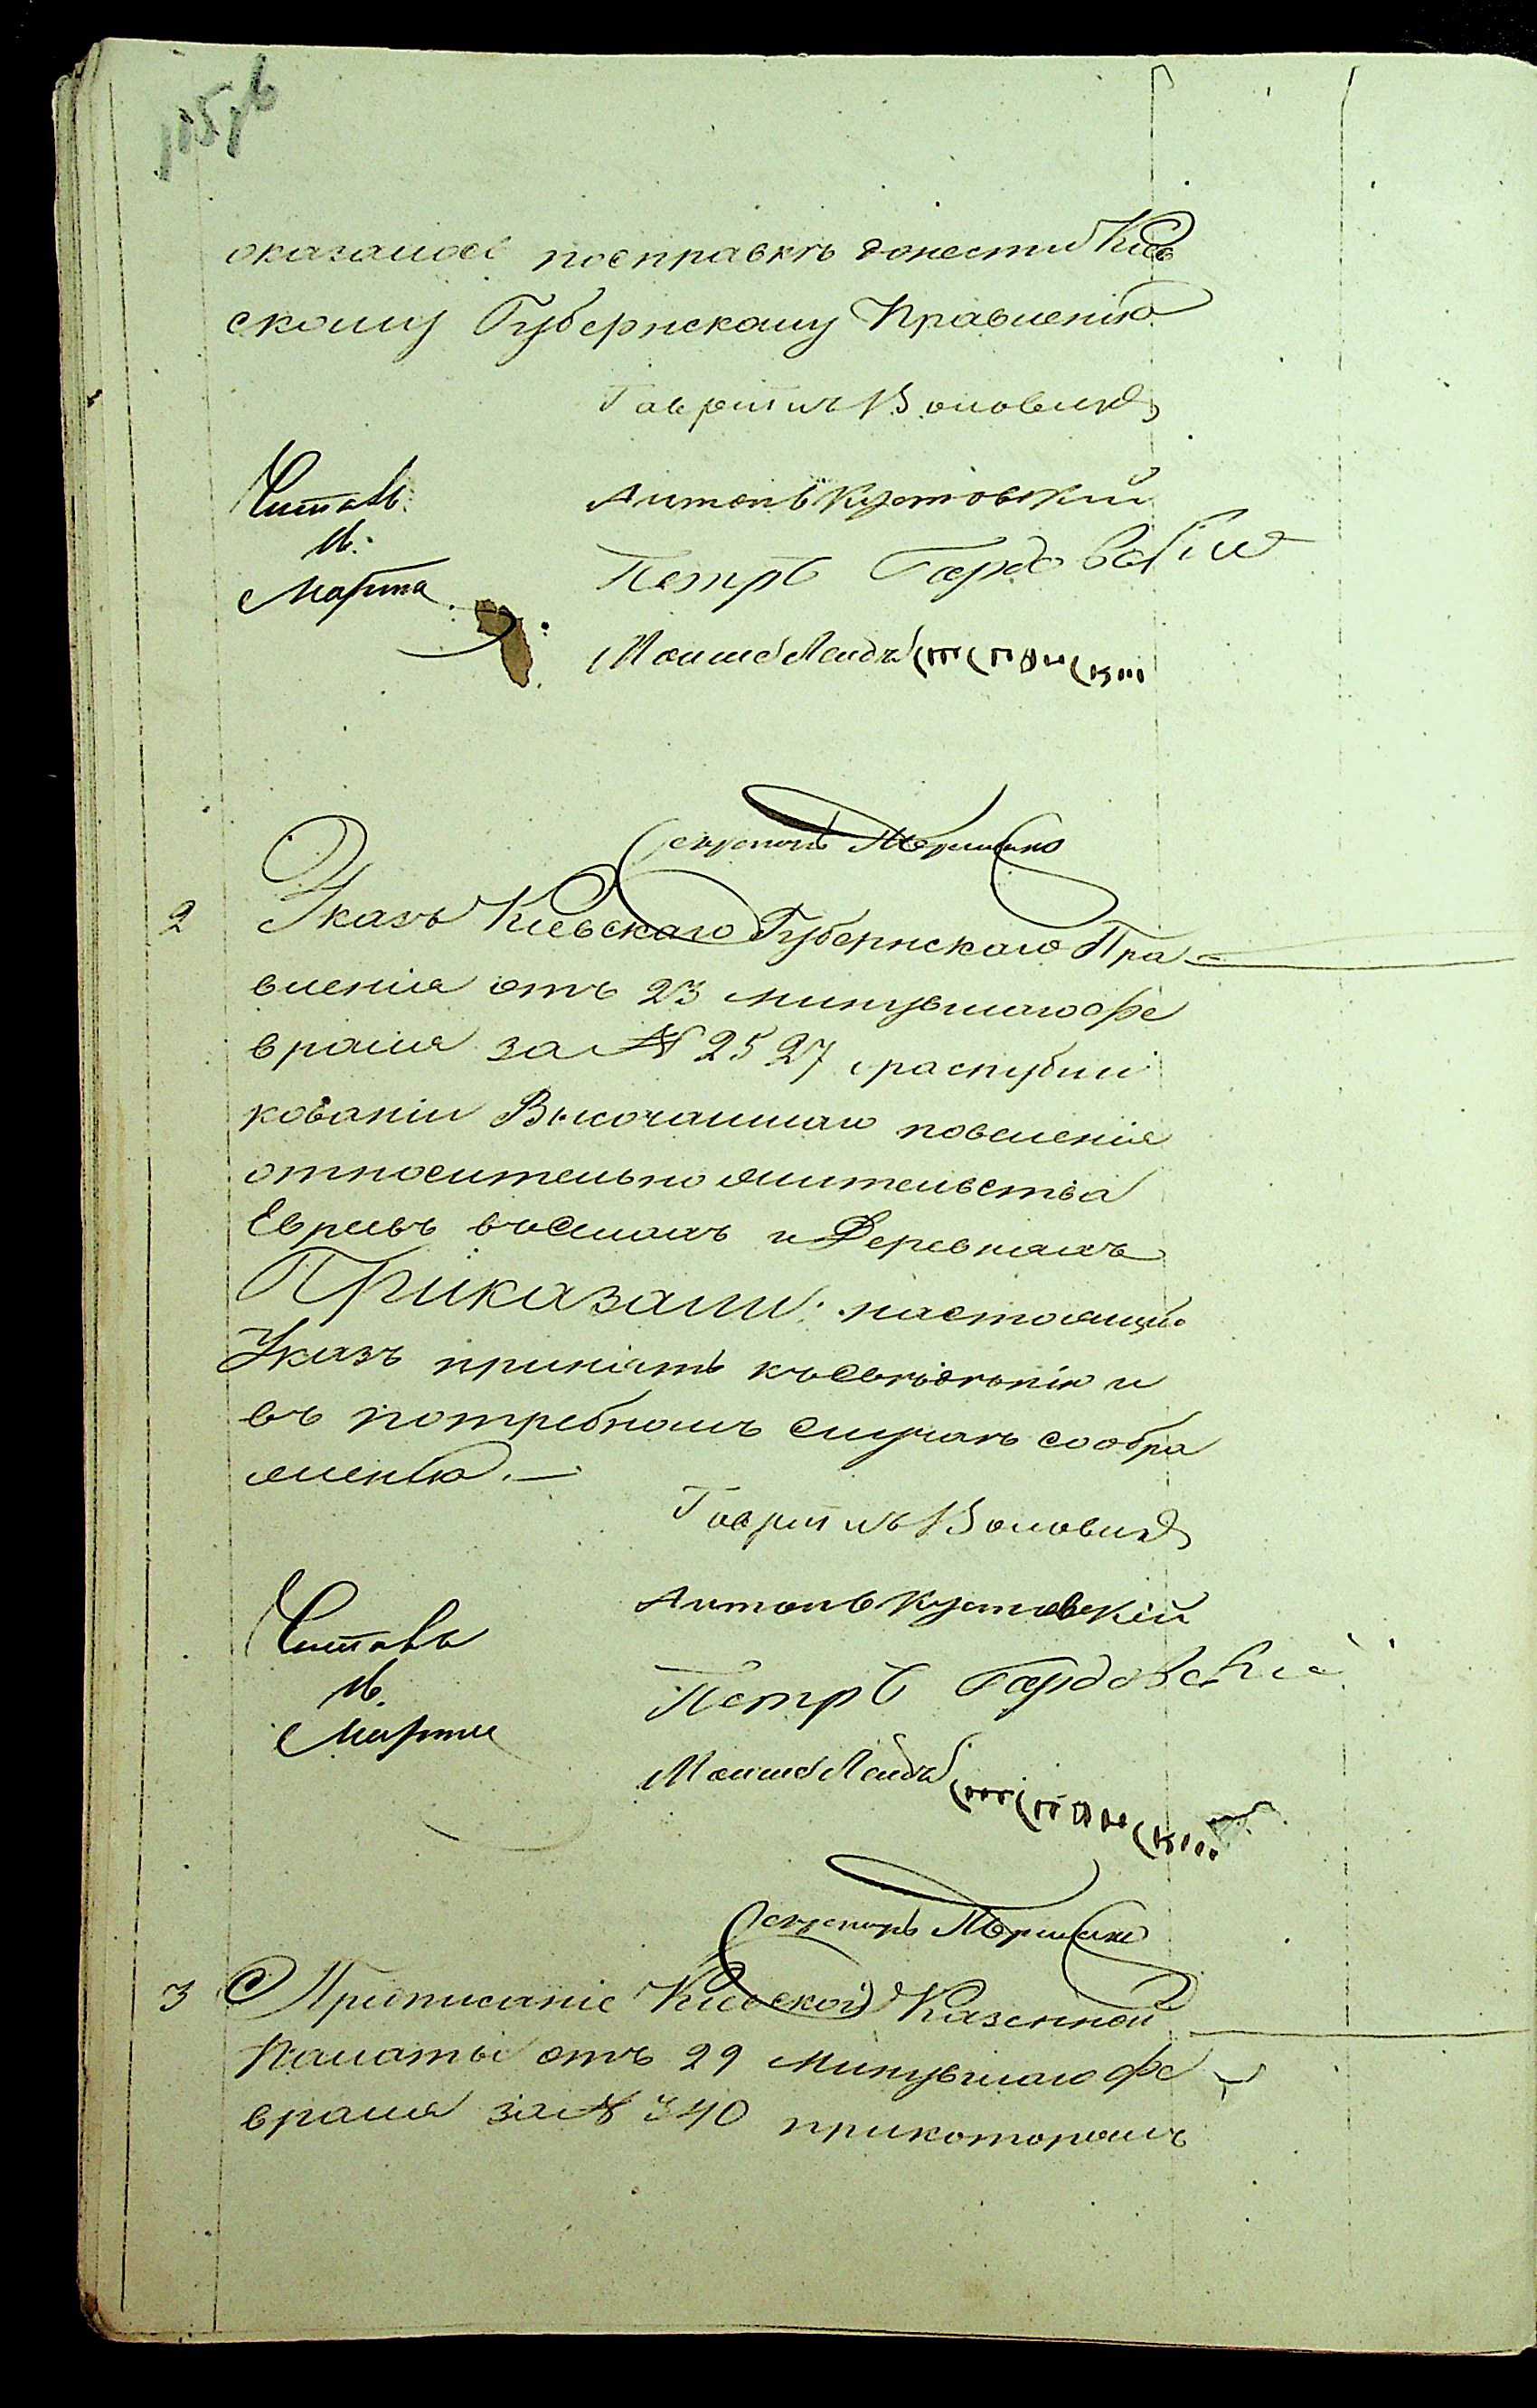 оказалось посправкѣ донести Кіев
скому Губернскому Правленію
Гавріилъ Воловикъ
Читалъ: Антонъ Кустовскій
М: Петръ Гардовскій
Марта Мошко Лейбъ
Секретарь
2 Указъ Кіевскаго Губернскаго Пра
вленія отъ 23 минувшаго Фе
враля за № 2527 о распубли
кованіи Высочайшаго повеленія
относительно жительства
Евреевъ въ Селахъ и Деревняхъ
Приказали: настоящій
Указъ принять къ Сведѣнію и
въ потребномъ Случаѣ сообра
женію.—
Гавріилъ Воловикъ
Читалъ Антонъ Кустовскій
М. Петръ Гардовскій
Марта Мошко Лейбъ
Секретарь
3 Предписаніе Кіевской Казенной
Палаты отъ 29 минувшаго Фе
враля за № 340 прикоторомъ